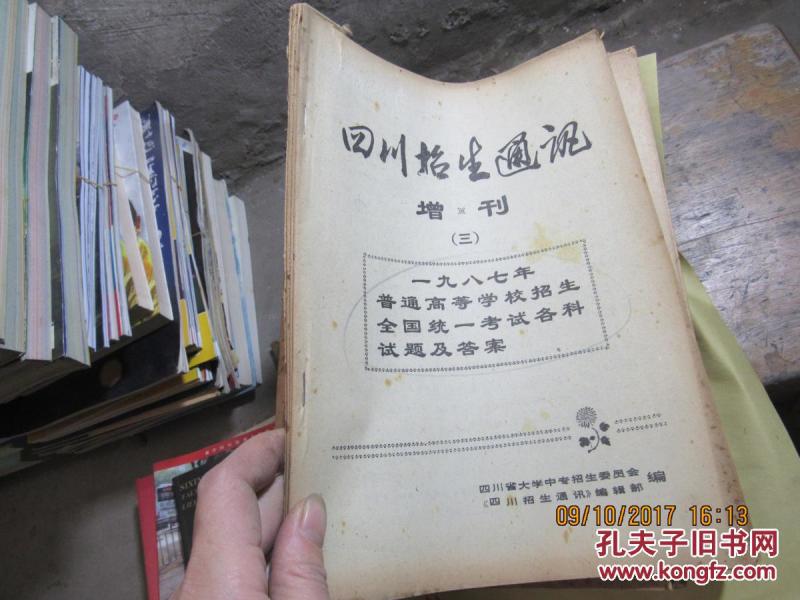 四川招生通讯
增刊
(三)
一九八七年
普通高等学校招生
全国统一考试各科
试题及答案
四川省大学中专招生委员会
《四川招生通讯》编辑部 编
09/10/2017 16:13
孔夫子旧书网
www.kongfz.com